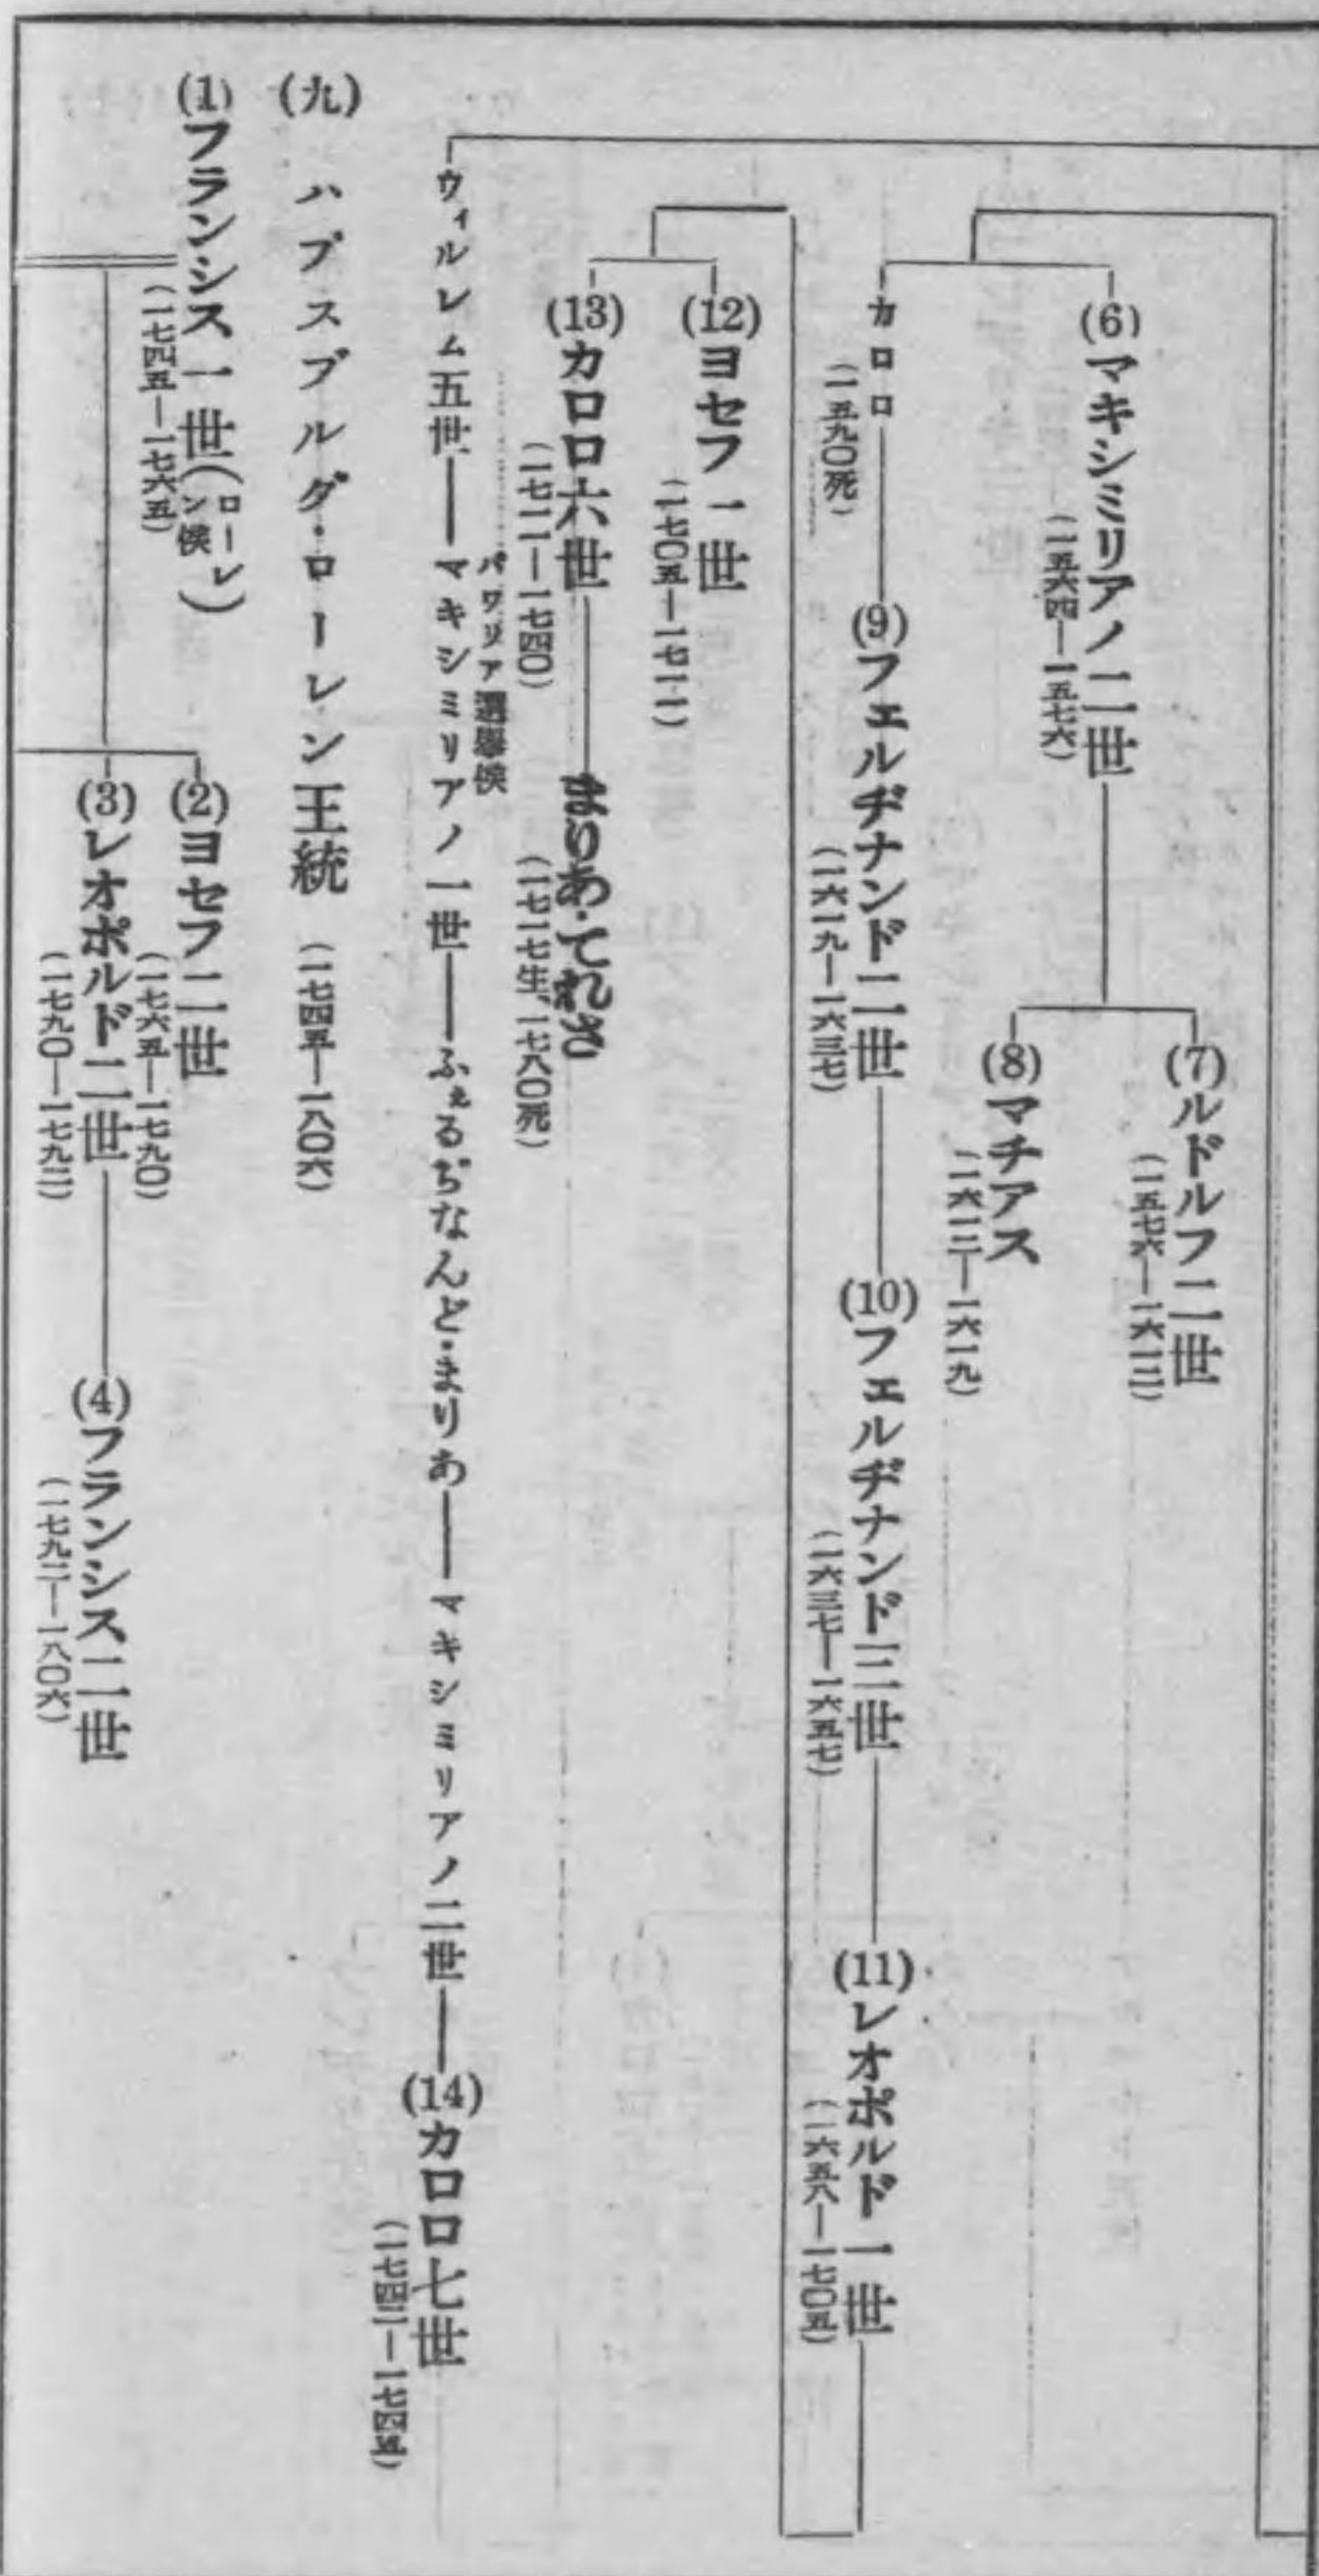 (6)マキシミリアノ二世
(一五六四—一五七六)
(7)ルドルフ二世
(一五七六—一六一二)
(8)マチアス
(一六一二—一六一九)
カロロ
(一五九〇死)
(9)フェルヂナンド二世
(一六一九—一六三七)
(10)フェルヂナンド三世
(一六三七—一六五七)
(11)レオポルド一世
(一六五八—一七〇五)
(12)ヨセフ一世
(一七〇五—一七一一)
(13)カロロ六世
(一七一一—一七四〇)
まりあ・てれさ
(一七一七生、一七八〇死)
ウィルレム五世
バワリア選擧侯
マキシミリアノ一世
ふぇるぢなんど・まりあ
マキシミリアノ二世
(14)カロロ七世
(一七四二—一七四五)
(九) ハブスブルグ・ローレン王統 (一七四五—一八〇六)
(1)フランシス一世(ローレン侯)
(一七四五—一七六五)
(2)ヨセフ二世
(一七六五—一七九〇)
(3)レオポルド二世
(一七九〇—一七九二)
(4)フランシス二世
(一七九二—一八〇六)